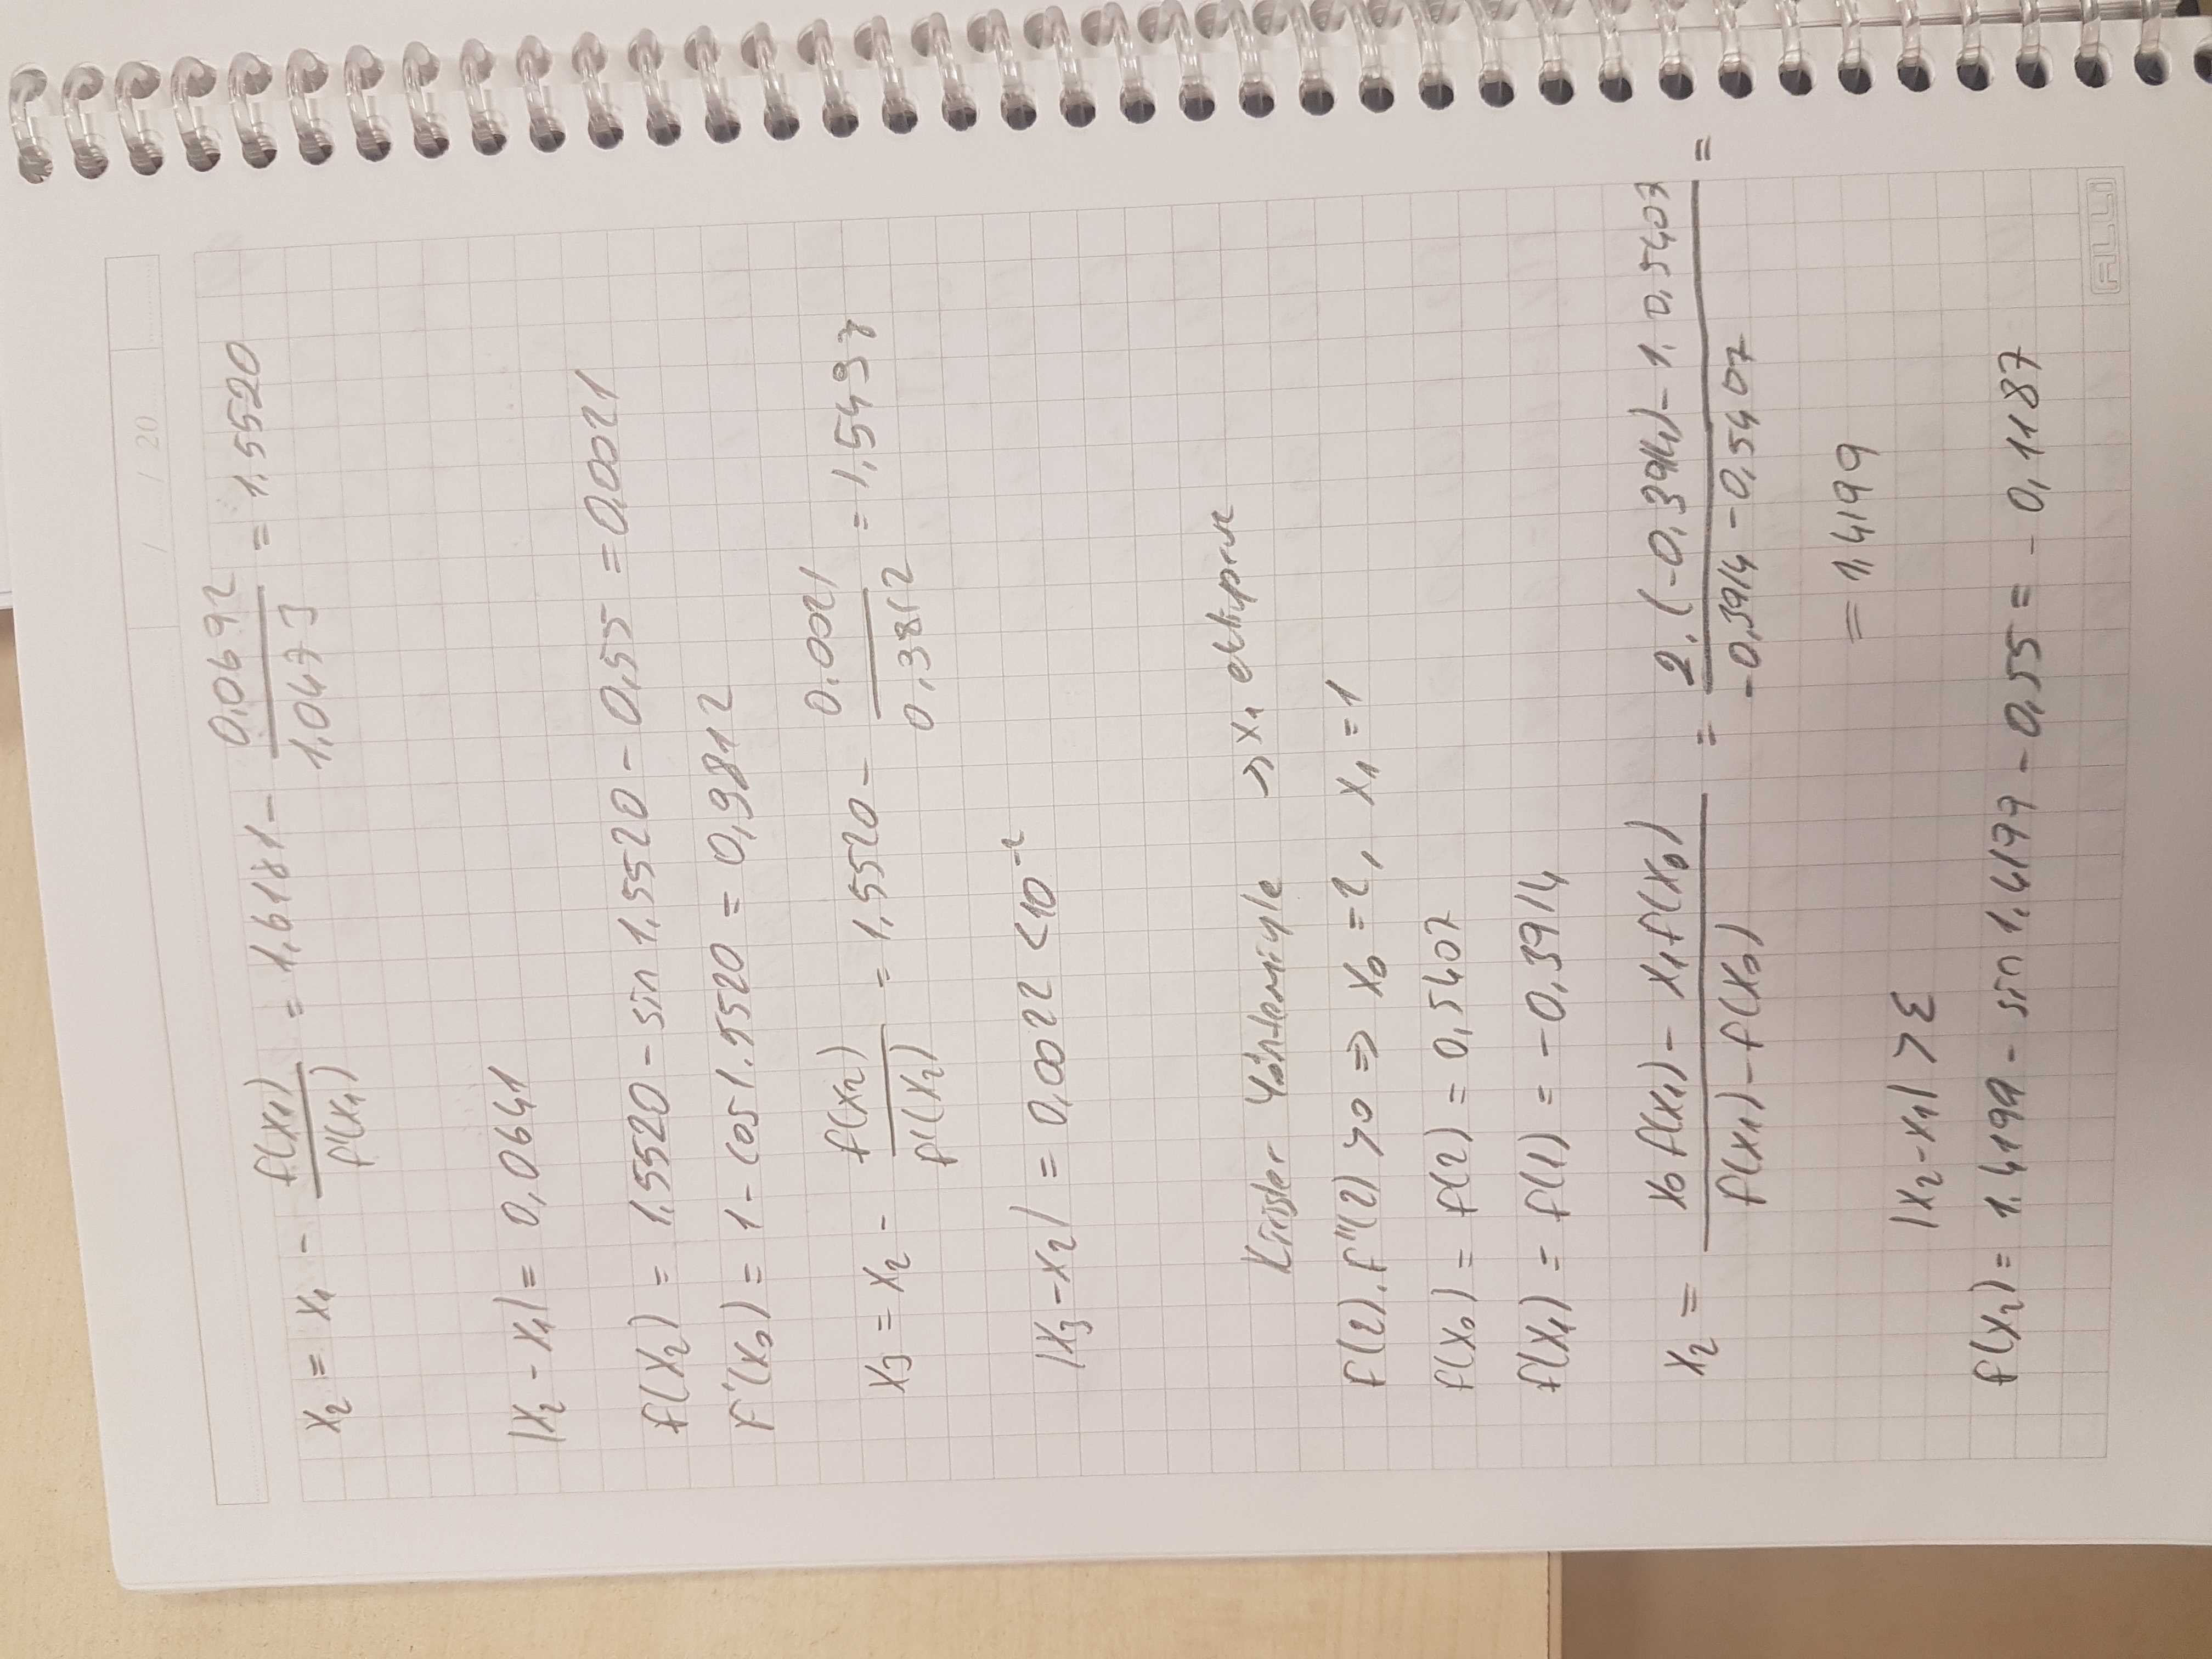 / / 20
x₂ = x₁ - f(x₁)/f'(x₁) = 1,6181 - 0,0692/1,0473 = 1.5520
|x₂ - x₁| = 0,0641
f(x₂) = 1.5520 - sin 1,5520 - 0,55 = 0,0021
f'(x₀) = 1 - cos 1.5520 = 0,9812
x₃ = x₂ - f(x₂)/f'(x₂) = 1,5520 - 0.0021/0,9812 = 1,5497
|x₃ - x₂| = 0,0022 < 10⁻²
Kirişler Yöntemiyle → x₁
f(2).f''(2) > 0 ⇒ x₀ = 2, x₁ = 1
f(x₀) = f(2) = 0,5407
f(x₁) = f(1) = -0,3914
x₂ = (x₀f(x₁) - x₁f(x₀))/(f(x₁) - f(x₀)) = (2.(-0,3914) - 1.0,5407)/(-0,3914 - 0,5407) =
= 1,4199
|x₂ - x₁| > ε
f(x₂) = 1.4199 - sin 1.4199 - 0,55 = - 0,1187
ALLi